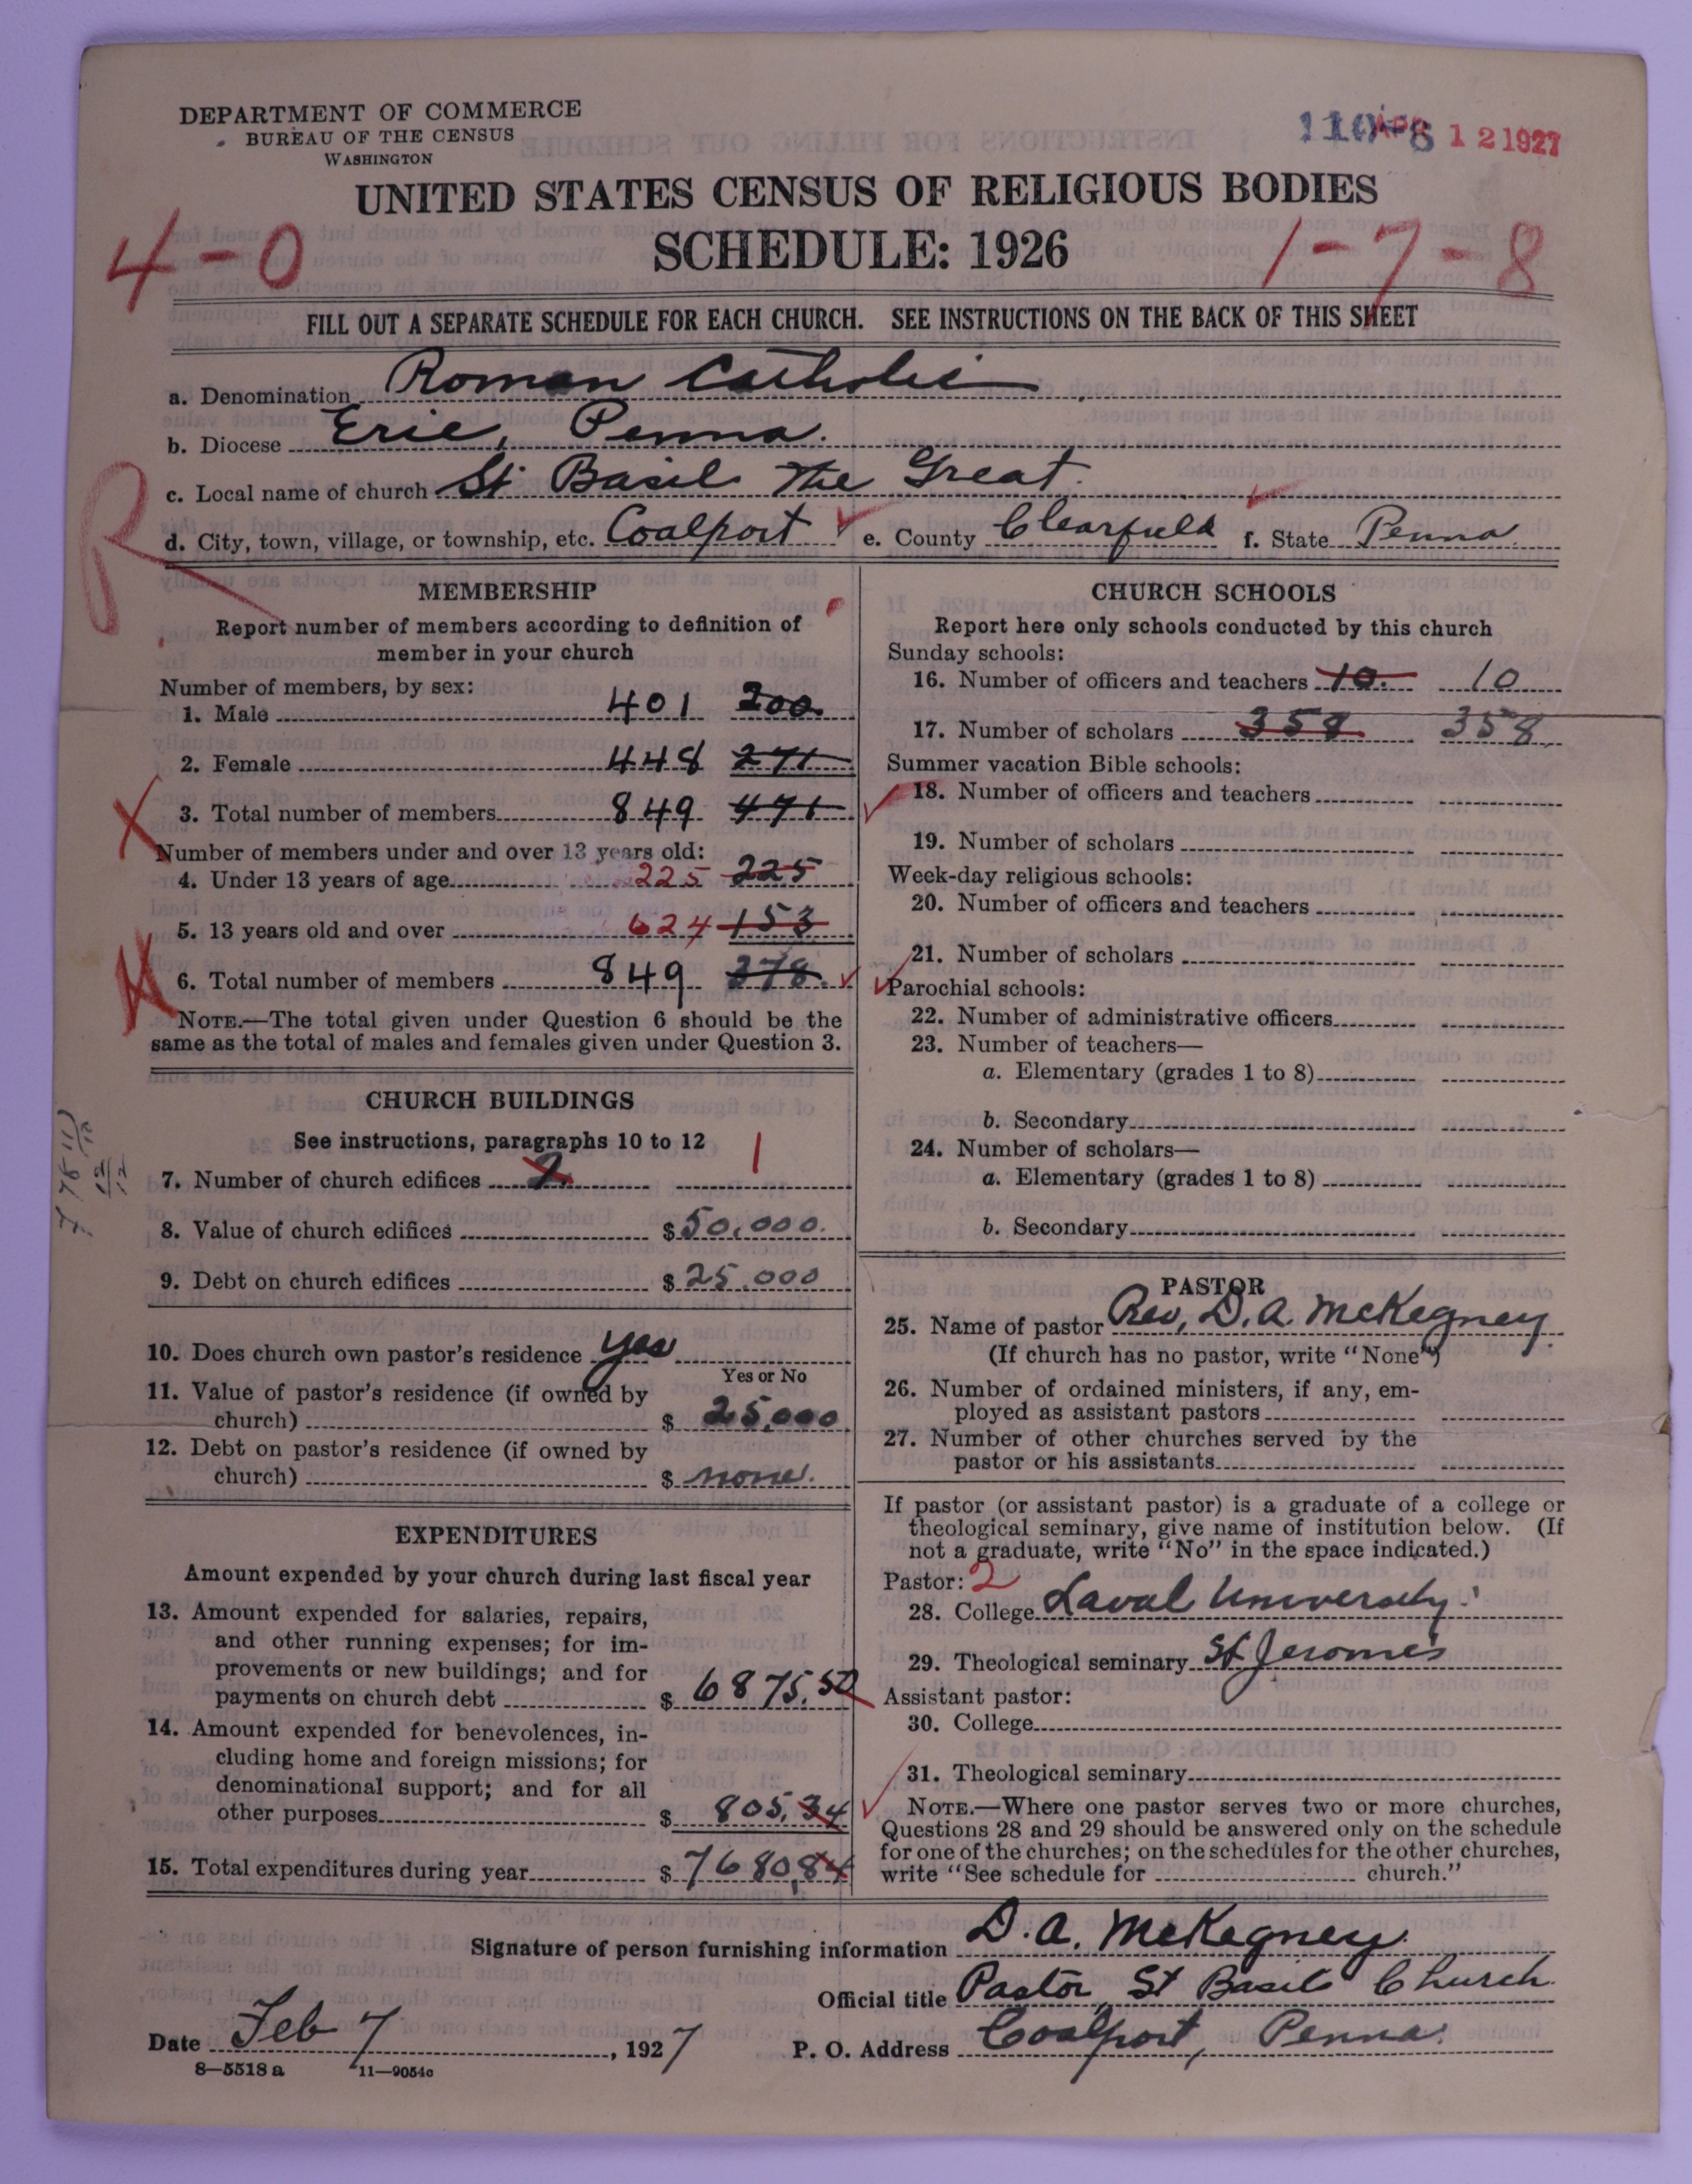 DEPARTMENT OF COMMERCE
BUREAU OF THE CENSUS
WASHINGTON
12 1927
UNITED STATES CENSUS OF RELIGIOUS BODIES
SCHEDULE: 1926
4-0
1-7-8
FILL OUT A SEPARATE SCHEDULE FOR EACH CHURCH. SEE INSTRUCTIONS ON THE BACK OF THIS SHEET
a. Denomination Roman Catholic
b. Diocese Erie, Penna.
c. Local name of church St Basil The Great.
R
d. City, town, village, or township, etc. Coalport e. County Clearfield f. State Penna.
MEMBERSHIP
Report number of members according to definition of
member in your church
Number of members, by sex:
1. Male 401 200
2. Female 448 271
3. Total number of members 849 471
Number of members under and over 13 years old:
4. Under 13 years of age 225 225
5. 13 years old and over 624 153
6. Total number of members 849 378.
NOTE.—The total given under Question 6 should be the
same as the total of males and females given under Question 3.
CHURCH BUILDINGS
See instructions, paragraphs 10 to 12
7. Number of church edifices 2 1
8. Value of church edifices $50,000.
9. Debt on church edifices $25,000
10. Does church own pastor's residence yes
Yes or No
11. Value of pastor's residence (if owned by
church) $ 25,000
12. Debt on pastor's residence (if owned by
church) $ none.
EXPENDITURES
Amount expended by your church during last fiscal year
13. Amount expended for salaries, repairs,
and other running expenses; for im-
provements or new buildings; and for
payments on church debt $ 6875.50
14. Amount expended for benevolences, in-
cluding home and foreign missions; for
denominational support; and for all
other purposes $ 805.34
15. Total expenditures during year $ 7680.84
CHURCH SCHOOLS
Report here only schools conducted by this church
Sunday schools:
16. Number of officers and teachers 10. 10
17. Number of scholars 358 358
Summer vacation Bible schools:
18. Number of officers and teachers
19. Number of scholars
Week-day religious schools:
20. Number of officers and teachers
21. Number of scholars
Parochial schools:
22. Number of administrative officers
23. Number of teachers—
a. Elementary (grades 1 to 8)
b. Secondary
24. Number of scholars—
a. Elementary (grades 1 to 8)
b. Secondary
PASTOR
25. Name of pastor Rev. D. A. McKegney.
(If church has no pastor, write "None")
26. Number of ordained ministers, if any, em-
ployed as assistant pastors
27. Number of other churches served by the
pastor or his assistants
If pastor (or assistant pastor) is a graduate of a college or
theological seminary, give name of institution below. (If
not a graduate, write "No" in the space indicated.)
Pastor: 2
28. College Laval University
29. Theological seminary St Jerome's
Assistant pastor:
30. College
31. Theological seminary
NOTE.—Where one pastor serves two or more churches,
Questions 28 and 29 should be answered only on the schedule
for one of the churches; on the schedules for the other churches,
write "See schedule for church."
Signature of person furnishing information D. A. McKegney.
Official title Pastor, St Basil Church
Date Feb 7, 1927 P. O. Address Coalport, Penna.
8—5518 a 11—9054c